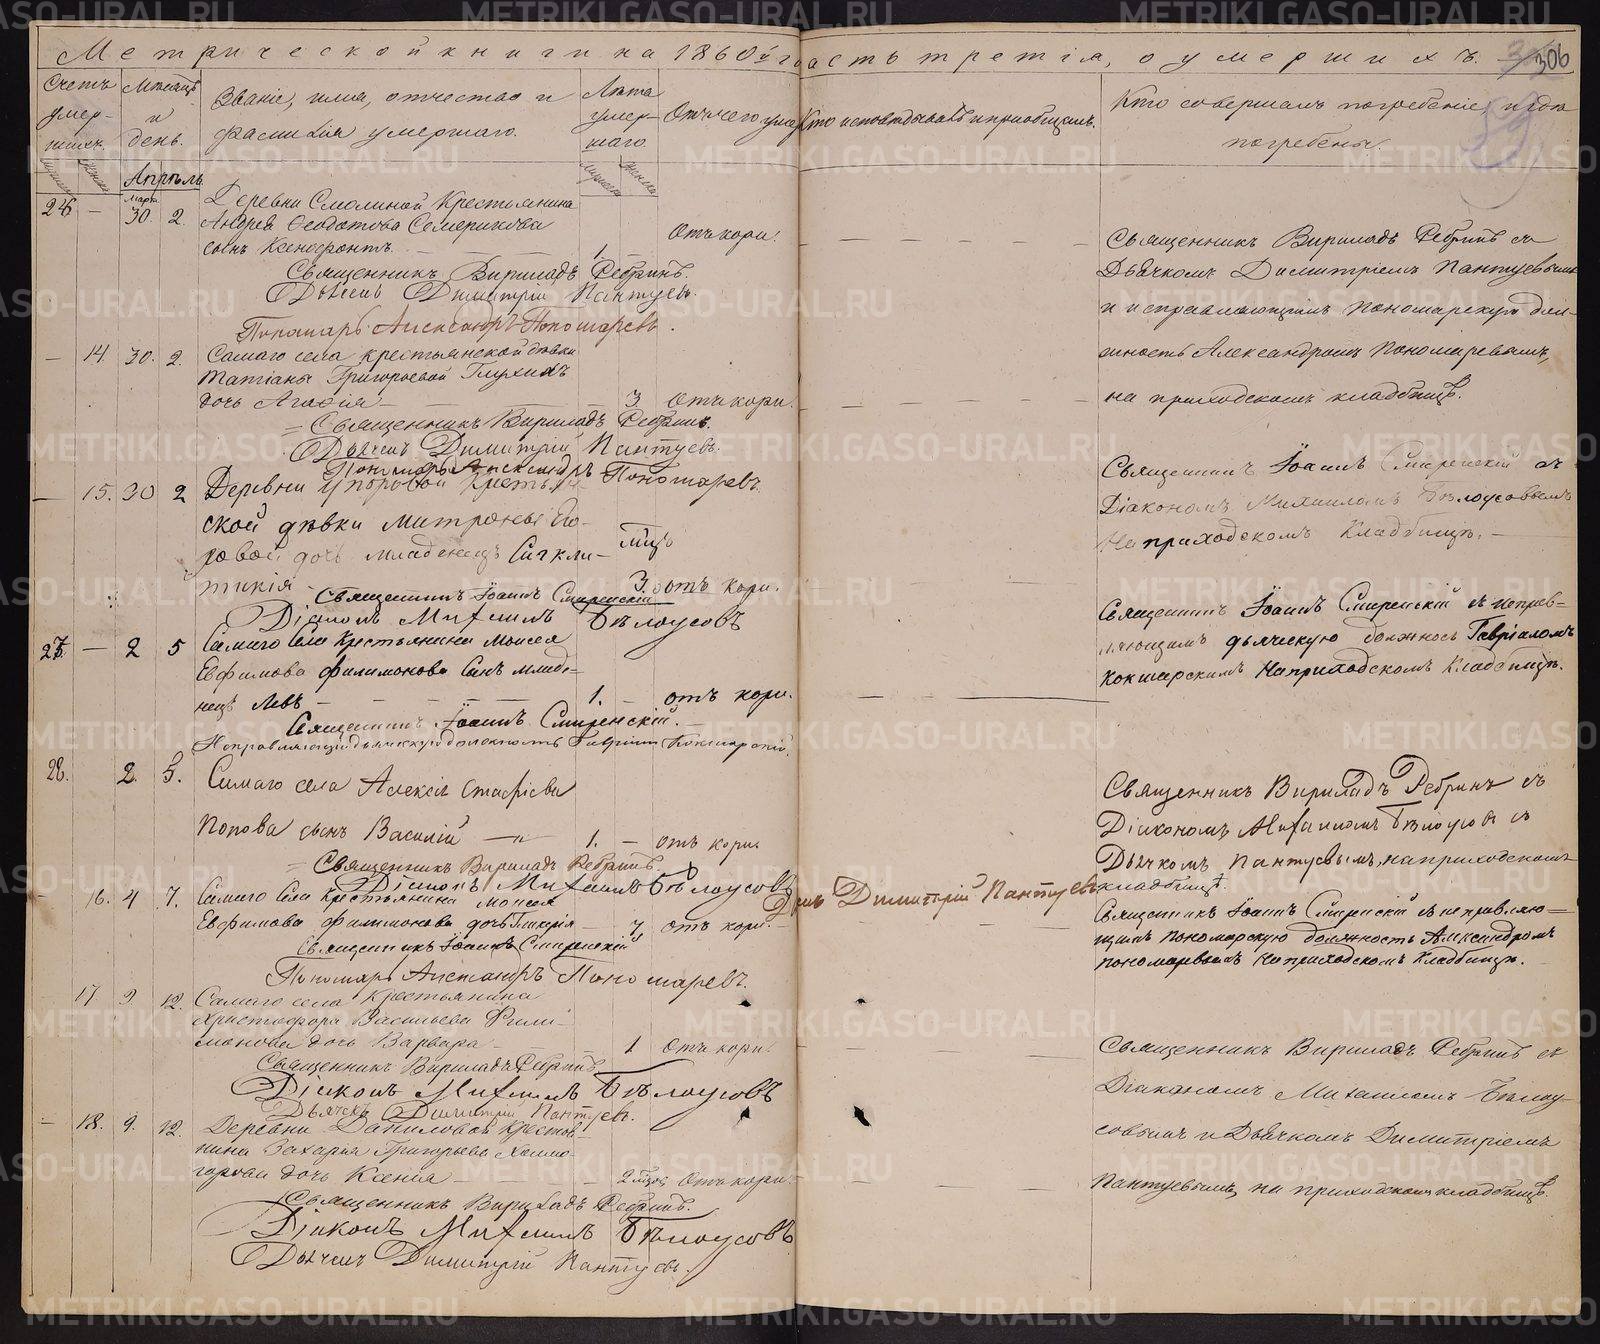 Метрической книги на 1860й го
Счетъ умер-
шихъ.
Мѣсяцъ
и
день.
Званіе, имя, отчество и
фамилія умершаго.
Лѣта
умер-
шаго.
Отъ чего умер
Мужеска
Женска
Мужеска
Женска
Апрѣль
26 — Марта 30. 2. Деревни Смолиной Крестьянина
Андрея Ѳеодотова Семерикова
сынъ Ксенофонтъ. 1. — Отъ кори.
Священникъ Вириладъ Ребринъ.
Дьячекъ Димитрій Пантуевъ.
Пономарь Александръ Пономаревъ.
— 14 30. 2. Самаго села крестьянской дѣвки
Татіаны Григорьевой Глухихъ
дочь Агафія — 3 Отъ кори.
Священникъ Вириладъ Ребринъ.
Дьячекъ Димитрій Пантуевъ.
Пономарь Александръ Пономаревъ.
— 15. 30 2 Деревни
ской дѣвки Митрофьи Его-
ровой дочь младенецъ Сигкли-
тикія — 3. отъ кори.
Священникъ Іоаннъ Смиренскій
Діаконъ Михаилъ Бѣлоусовъ
27. — 2 5 Самаго села Крестьянина Моисея
Евфимова Филимонова сынъ младе-
нецъ Левъ — 1. — отъ кори.
Священникъ Іоаннъ Смиренскій.
Исправляющій дьяческую должность Гавріилъ Кокшарскій.
28. 2. 5. Самаго села Алексія
Попова сынъ Василій — 1. — отъ кори
Священникъ Вириладъ Ребринъ.
Діаконъ Михаилъ Бѣлоусовъ
Дьячекъ Димитрій Пантуевъ
— 16. 4 7. Самаго села Крестьянина Моисея
Евфимова Филимонова дочь Гликерія — 7 отъ кори.
Священникъ Іоаннъ Смиренскій
Пономарь Александръ Пономаревъ.
17 9. 12. Самаго села Крестьянина
Христофора Васильева Фили-
монова дочь Варвара — 1 Отъ кори.
Священникъ Вириладъ Ребринъ
Діаконъ Михаилъ Бѣлоусовъ
Дьячекъ Димитрій Пантуевъ.
— 18. 9. 12. Деревни Даниловой Крестья-
нина Захарія Григорьева Холмо-
горова дочь Ксенія — 2 Отъ кори
Священникъ Вириладъ Ребринъ.
Діаконъ Михаилъ Бѣлоусовъ
Дьячекъ Димитрій Пантуевъ.
асть третія, о умершихъ.
306
Кто исповѣдывалъ и пріобщалъ.
Кто совершалъ погребеніе, и гдѣ
погребены.
Священникъ Вириладъ Ребринъ съ
Дьячкомъ Димитріемъ Пантуевымъ
и исправляющимъ пономарскую долж-
ность Александромъ Пономаревымъ,
на приходскомъ кладбищѣ.
Священникъ Іоаннъ Смиренскій съ
Діакономъ Михаиломъ Бѣлоусовымъ
На приходскомъ Кладбищѣ. —
Священникъ Іоаннъ Смиренскій съ исправ-
ляющимъ дьяческую должность Гавріиломъ
Кокшарскимъ На приходскомъ Кладбищѣ.
Священникъ Вириладъ Ребринъ съ
Діакономъ Михаиломъ Бѣлоусовымъ съ
Дьячкомъ Пантуевымъ, на приходскомъ
кладбищѣ.
Священникъ Іоаннъ Смиренскій съ исправляю-
щимъ пономарскую должность Александромъ
Пономаревымъ На приходскомъ Кладбищѣ.
Священникъ Вириладъ Ребринъ съ
Діакономъ Михаиломъ Бѣлоу-
совымъ и Дьячкомъ Димитріемъ
Пантуевымъ, на приходскомъ кладбищѣ.
METRIKI.GASO-URAL.RU